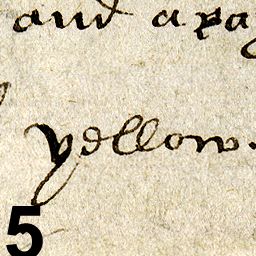 and a pa
yellow.
5